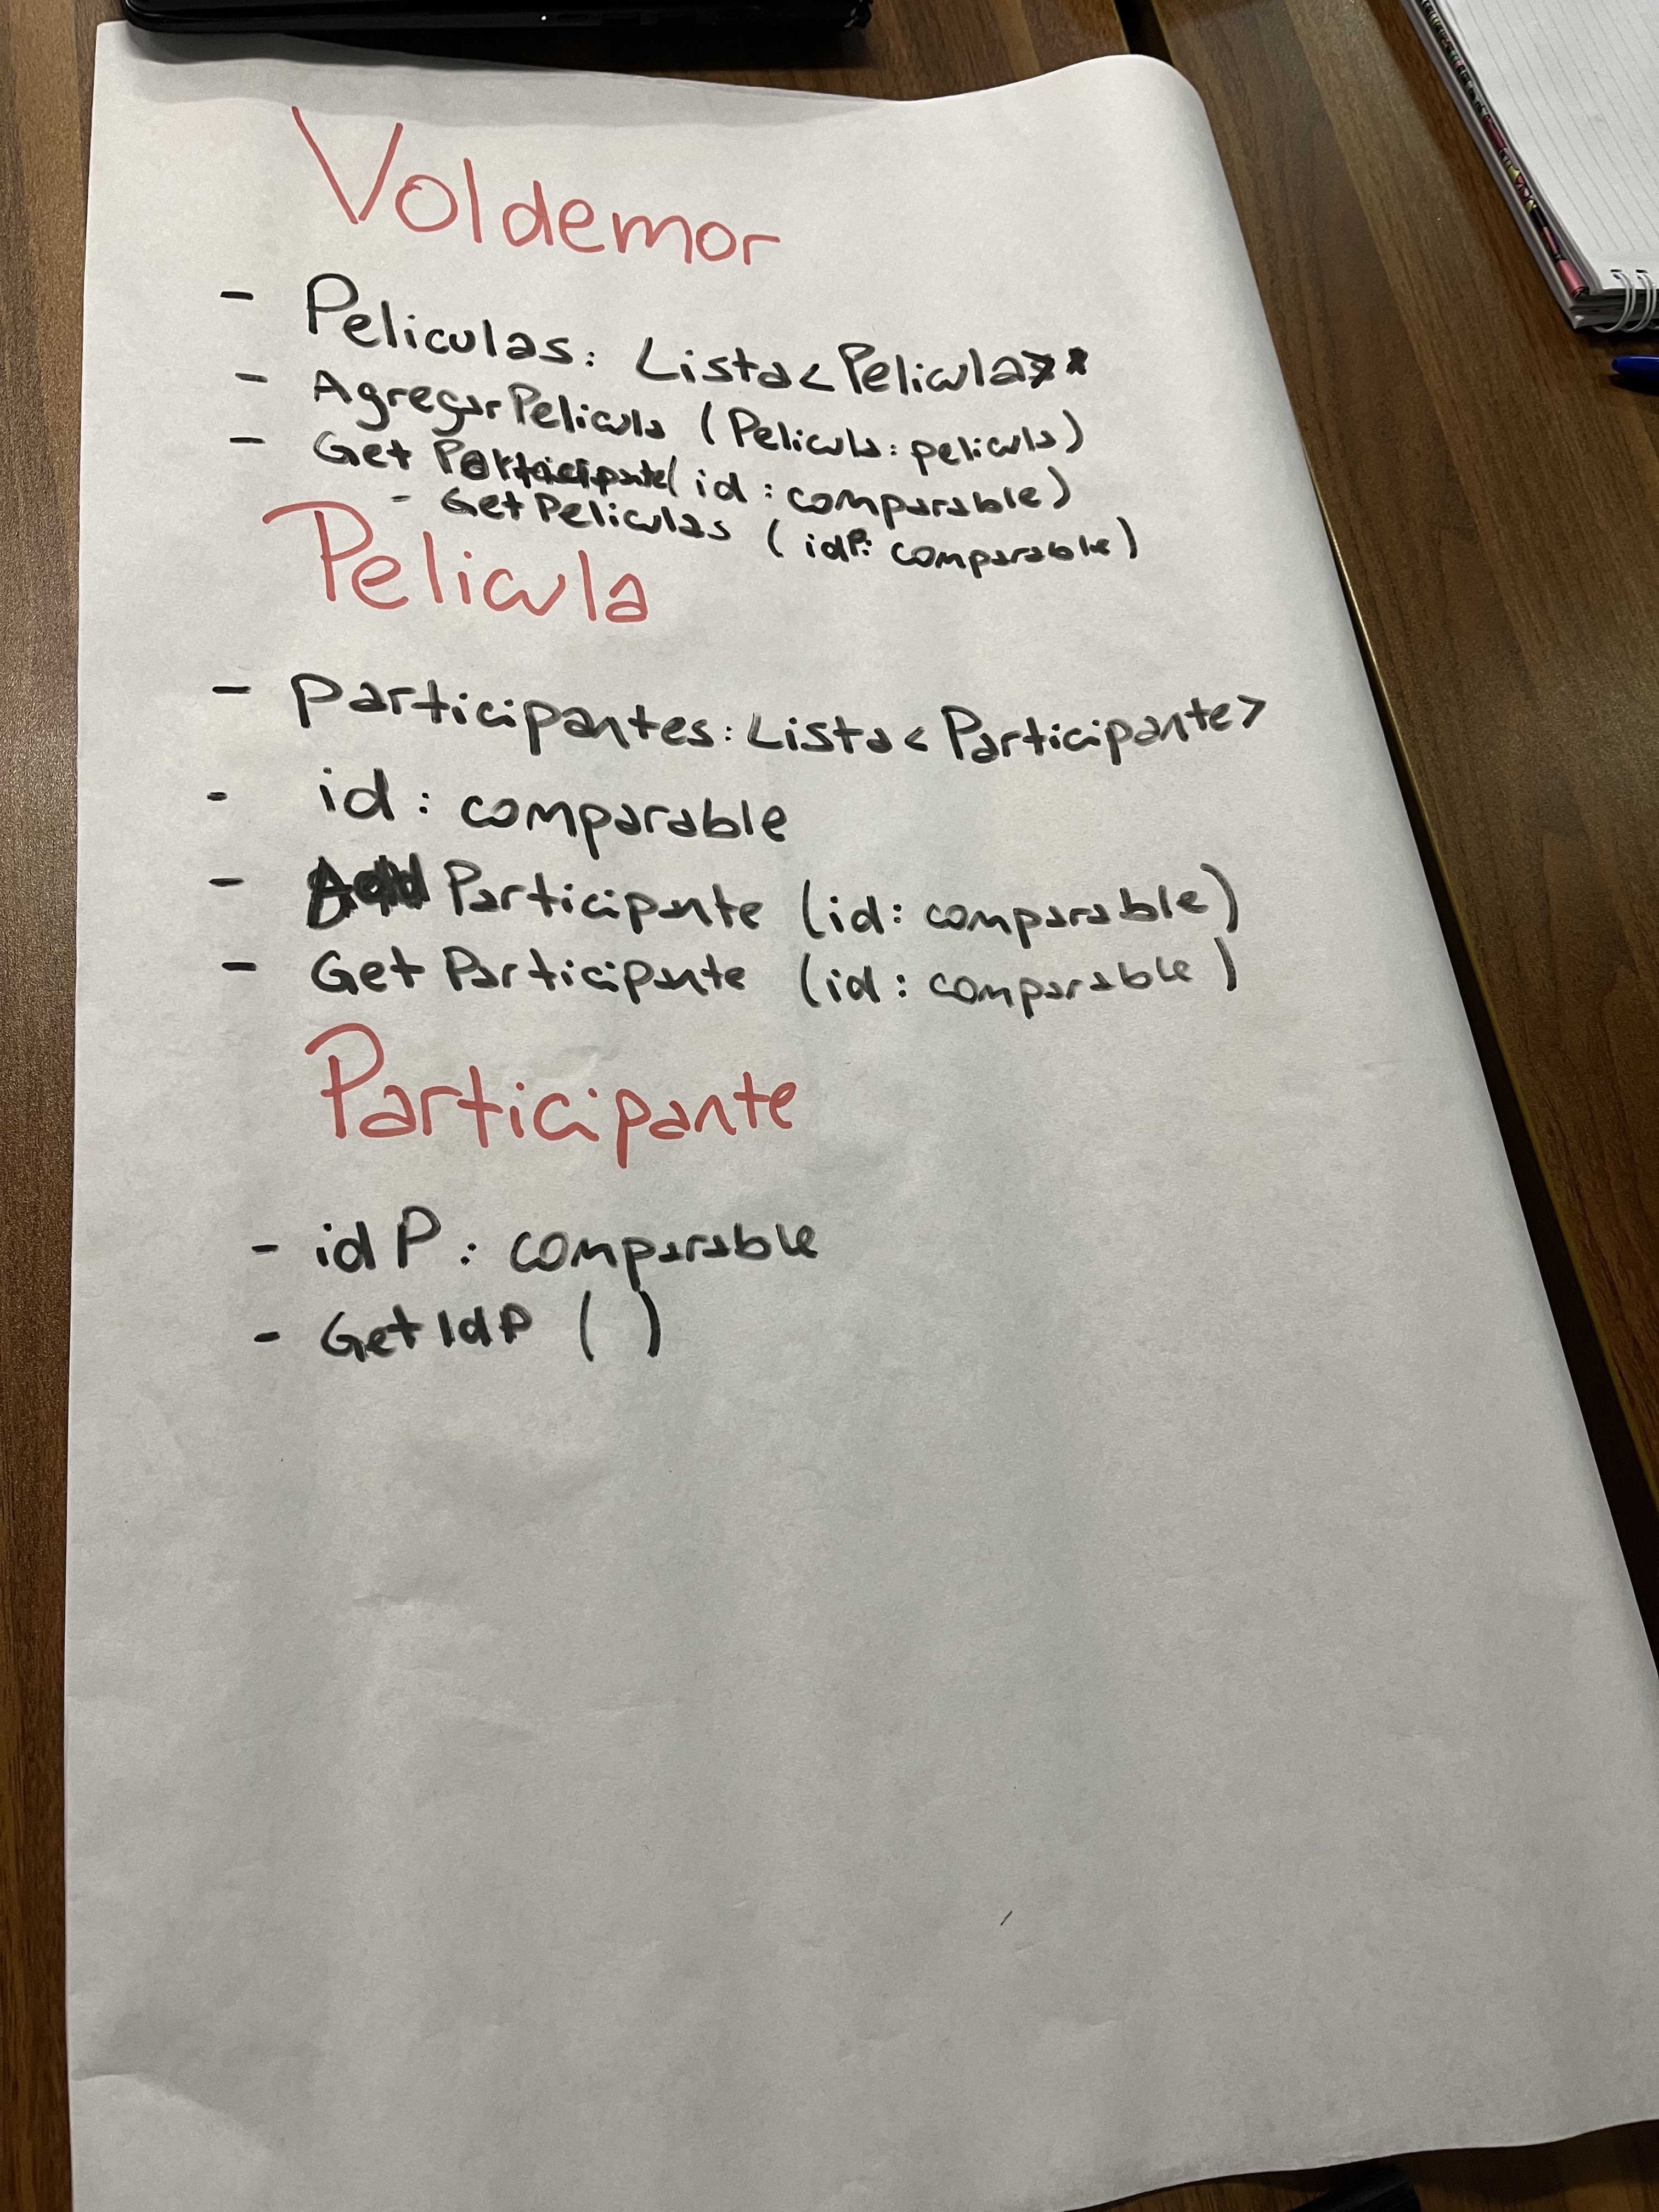 Voldemor
- Peliculas: Lista<Pelicula>*
- AgregarPelicula (Pelicula: pelicula)
- Get Participante( id : comparable)
- GetPeliculas ( idP: comparable)
Pelicula
- Participantes: Lista< Participante>
- id : comparable
- Add Participante (id: comparable)
- Get Participante (id: comparable)
Participante
- idP : comparable
- GetIdP ( )